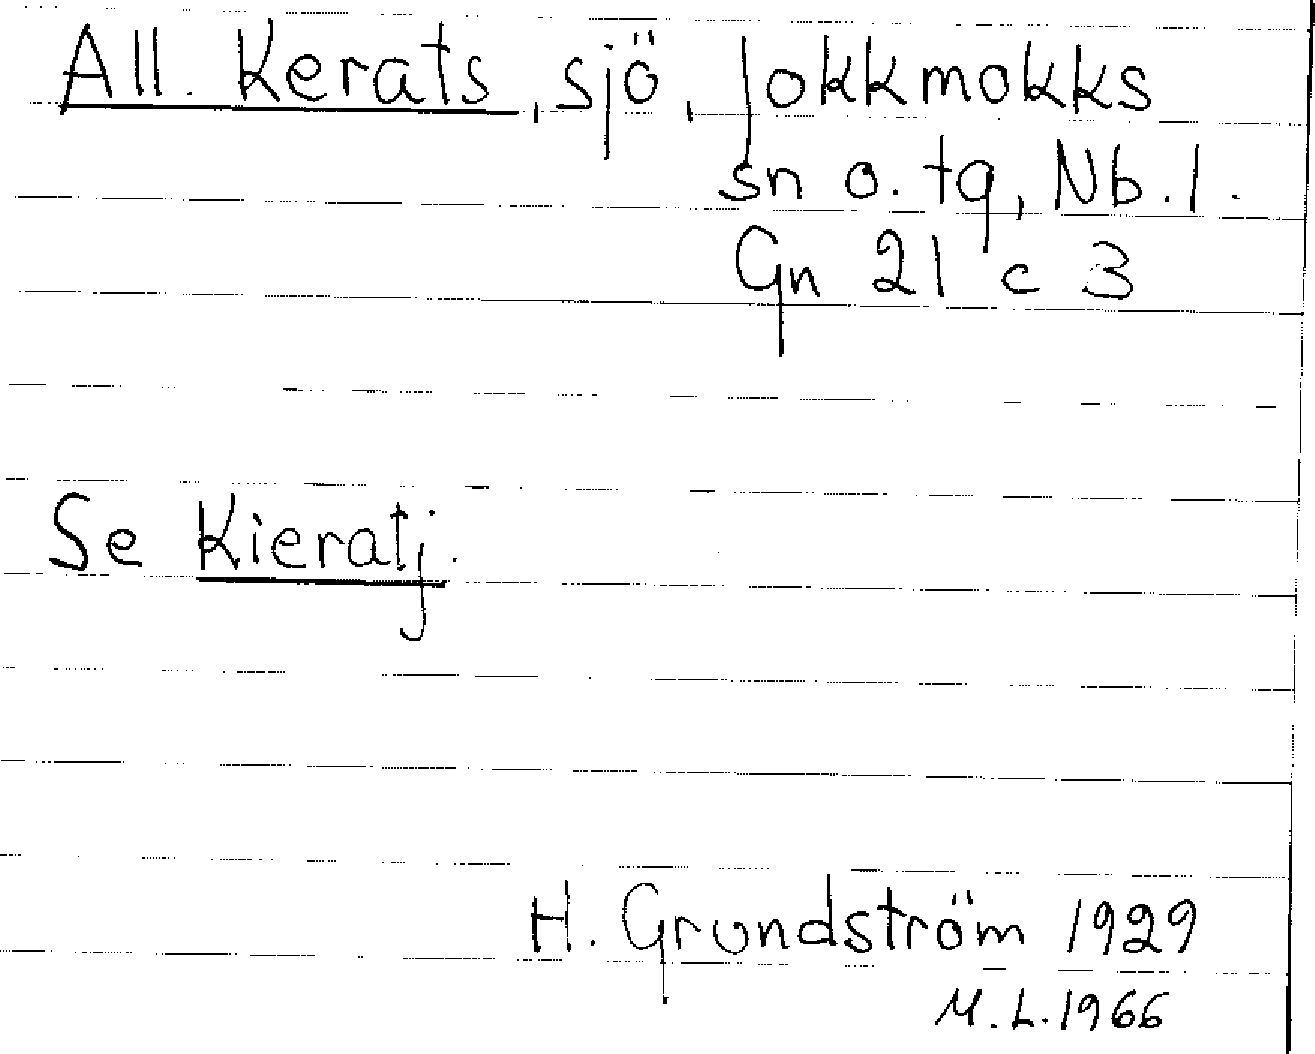 All. Kerats, sjö, Jokkmokks
sn o. tg, Nb. l.
Gn 21 c 3
Se Kieratj.
H. Grundström 1929
M.L. 1966